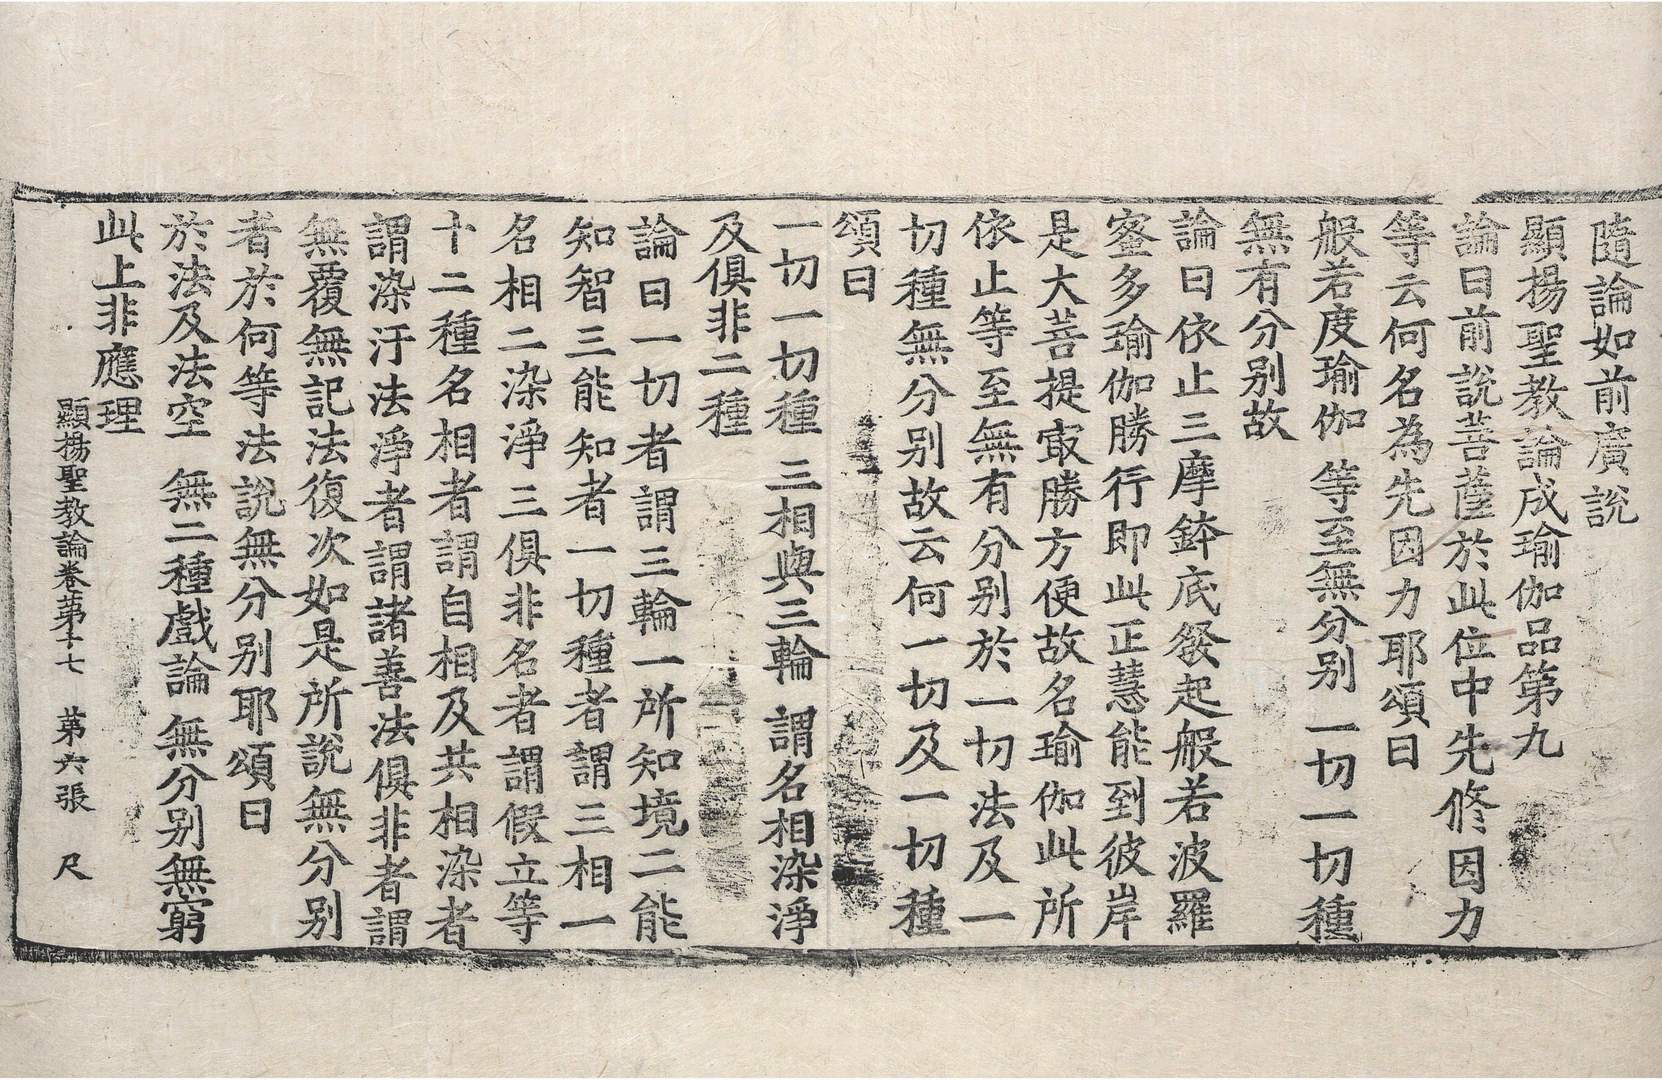 隨論如前廣說
顯揚聖教論成瑜伽品第九
論曰前說菩薩於此位中先修因力
等云何名為先因力耶頌曰
般若度瑜伽 等至無分別 一切一切種
無有分別故
論曰依止三摩鉢底發起般若波羅
蜜多瑜伽勝行即此正慧能到彼岸
是大菩提㝡勝方便故名瑜伽此所
依止等至無有分別於一切法及一
切種無分別故云何一切及一切種
頌曰
一切一切種 三相與三輪 謂名相染淨
及俱非二種
論曰一切者謂三輪一所知境二能
知智三能知者一切種者謂三相一
名相二染淨三俱非名者謂假立等
十二種名相者謂自相及共相染者
謂染汙法淨者謂諸善法俱非者謂
無覆無記法復次如是所說無分別
者於何等法說無分別耶頌曰
於法及法空 無二種戲論 無分別無窮
此上非應理
顯揚聖教論卷第十七 第六張 尺